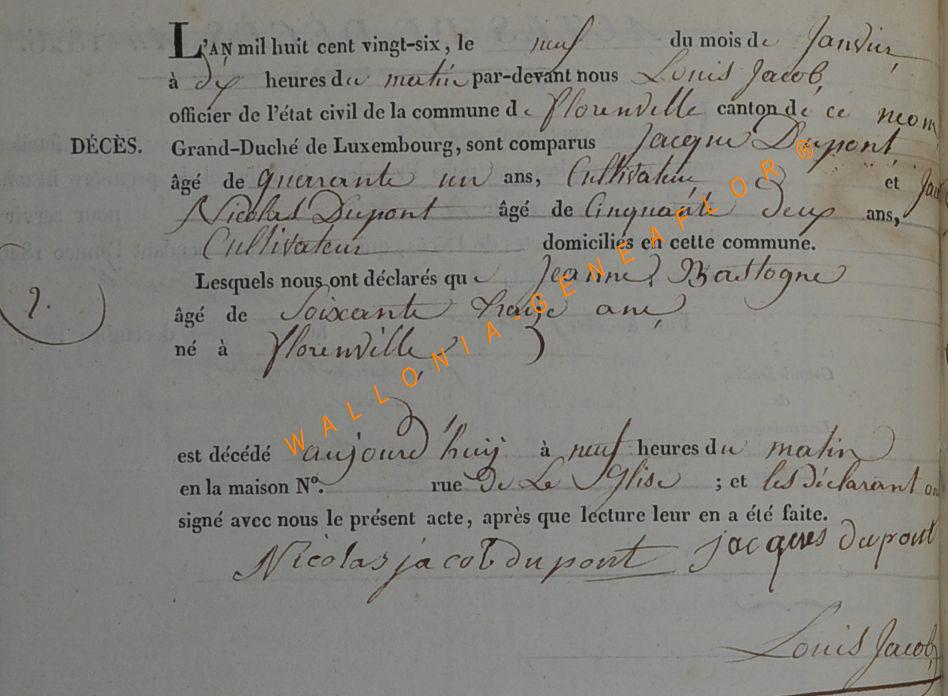 L'AN mil huit cent vingt-six, le neuf du mois de Janvier
à dix heures du matin par-devant nous Louis Jacob
officier de l'état civil de la commune de florenville canton de ce nom
DÉCÈS. Grand-Duché de Luxembourg, sont comparus Jacque Dupont
âgé de quarrante un ans, Cultivateur et
Nicolas Dupont âgé de Cinquante deux ans,
Cultivateur domiciliés en cette commune.
Lesquels nous ont déclarés que Jeanne Bastogne
2. âgé de Soixante traize ans
né à florenville
est décédé aujourd huij à neuf heures du matin
en la maison N°. rue De Le Glise ; et les déclarant
signé avec nous le présent acte, après que lecture leur en a été faite.
Nicolas jacob dupont jacques dupont
Louis Jacob
WALLONIA-GENEAFLOR ®